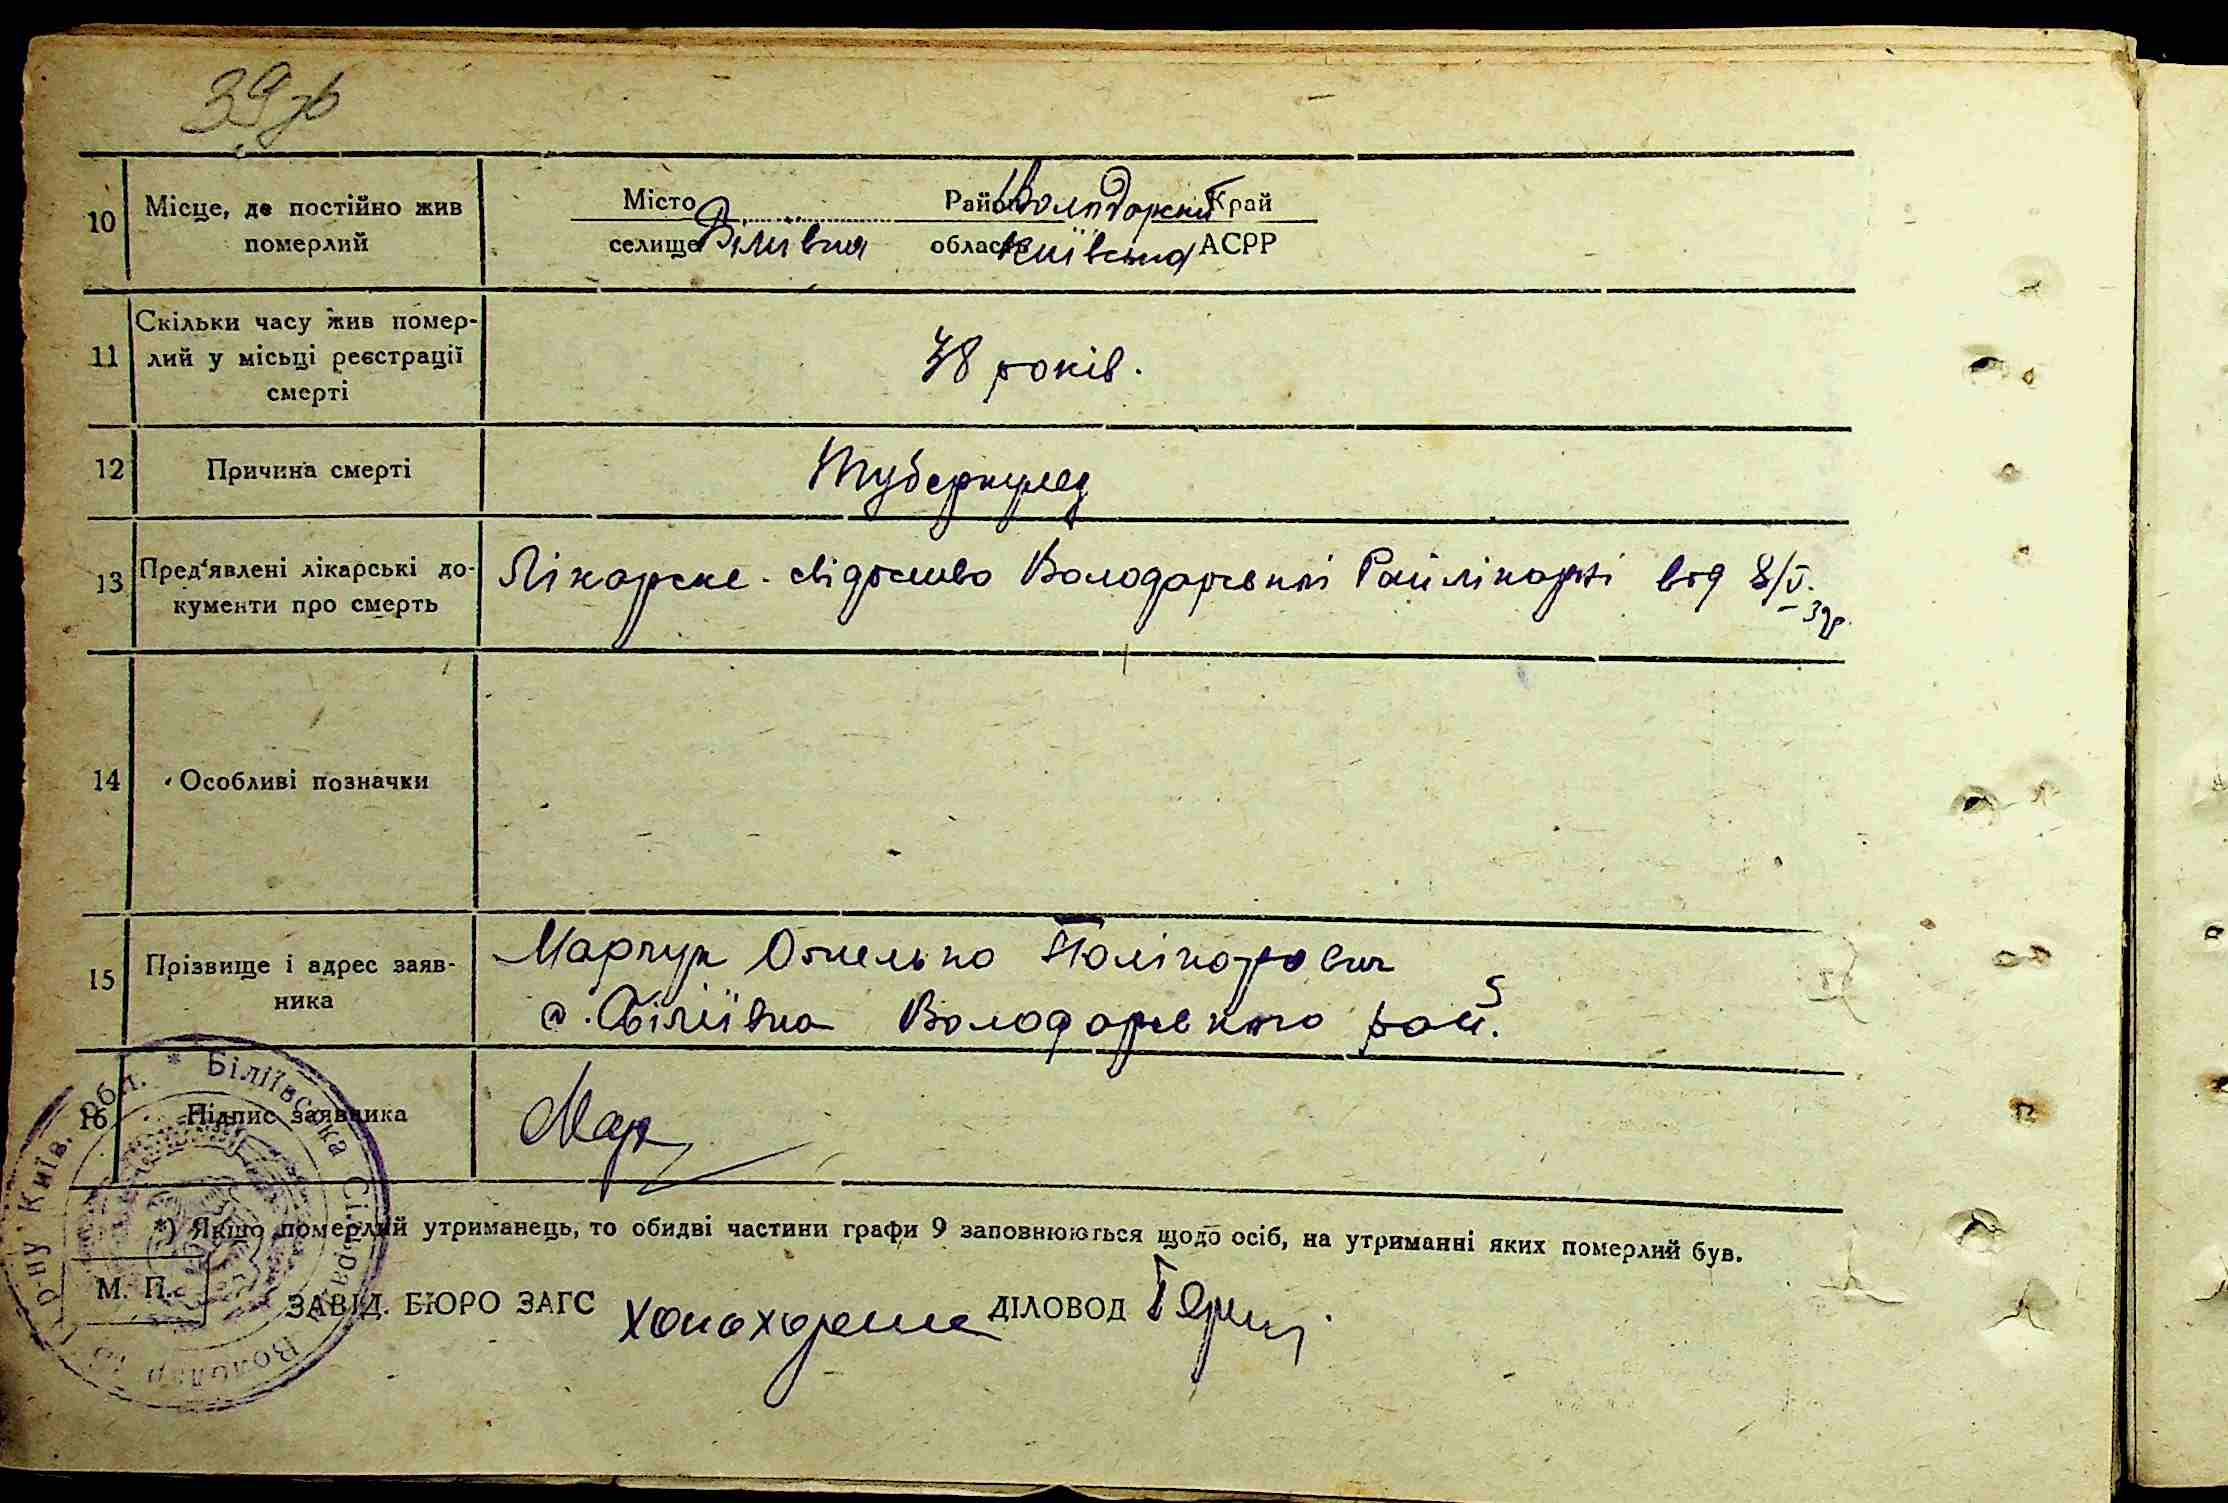 39зв
10 Місце, де постійно жив Місто Район Володарський Край
померлий селище Біліївка область Київська АСРР
Скільки часу жив помер-
11 лий у місьці реєстрації 38 років.
смерті
12 Причина смерті Туберкулез
13 Пред'явлені лікарські до- Лікарске свідоство Володарської Райлікарні від 8/V.
кументи про смерть 39р.
14 Особливі позначки
15 Прізвище і адрес заяв- Марчук Омелько Полікарович
ника с. Біліївка Володарського рай.
16 Підпис заявника Мар
*) Якщо померлий утриманець, то обидві частини графи 9 заповнюються щодо осіб, на утриманні яких померлий був.
М. П. ЗАВІД. БЮРО ЗАГС ДІЛОВОД
* Біліївська Сільрада Володар р-ну Київ. обл.